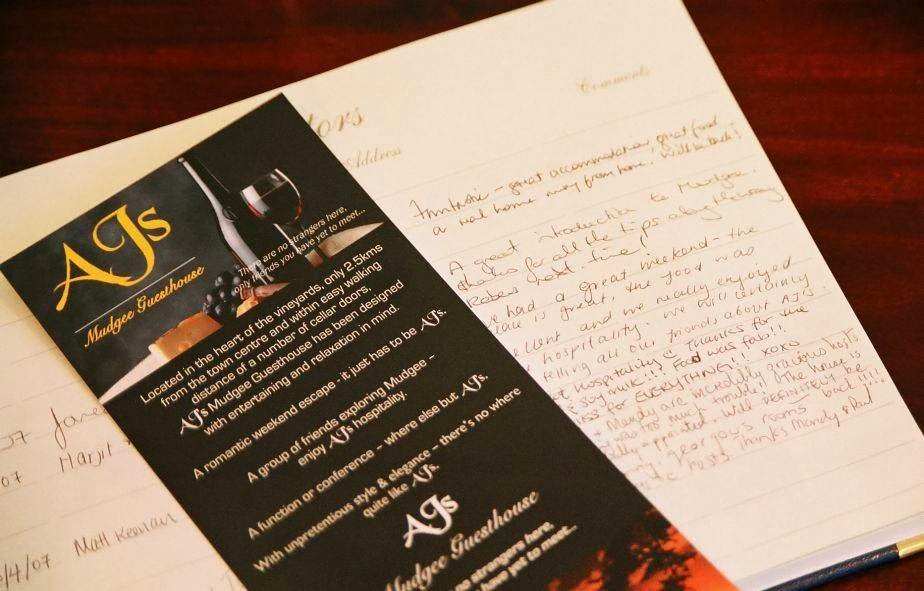 tors
Address
Comments
AJs
Mudgee Guesthouse
There are no strangers here,
only friends you have yet to meet...
Located in the heart of the vineyards, only 2.5kms
from the town centre and within easy walking
distance of a number of cellar doors,
AJs Mudgee Guesthouse has been designed
with entertaining and relaxation in mind.
A romantic weekend escape - it just has to be AJs.
A group of friends exploring Mudgee –
enjoy AJs hospitality.
A function or conference – where else but AJs.
With unpretentious style & elegance – there's no where
quite like AJs.
AJs
Mudgee Guesthouse
no strangers here,
have yet to meet...
07 Jane
07 Harjit
/4/07 Matt
Fantastic - great accommodation, great food
a real home away from home. Will be back!
A great introduction to Mudgee.
thanks for all the tips along the way
had a great weekend - the
place is great, the food was
excellent and we really enjoyed
hospitality. We will certainly
telling all our friends about AJ's.
hospitality & Thanks for the
soy milk!!! Food was fab!!!
for EVERYTHING!!! xoxo
& Mandy are incredibly gracious hosts
was too much trouble! The house is
appointed. Will definitely be
gorgeous rooms back!!!!
hosts thanks Mandy & Paul